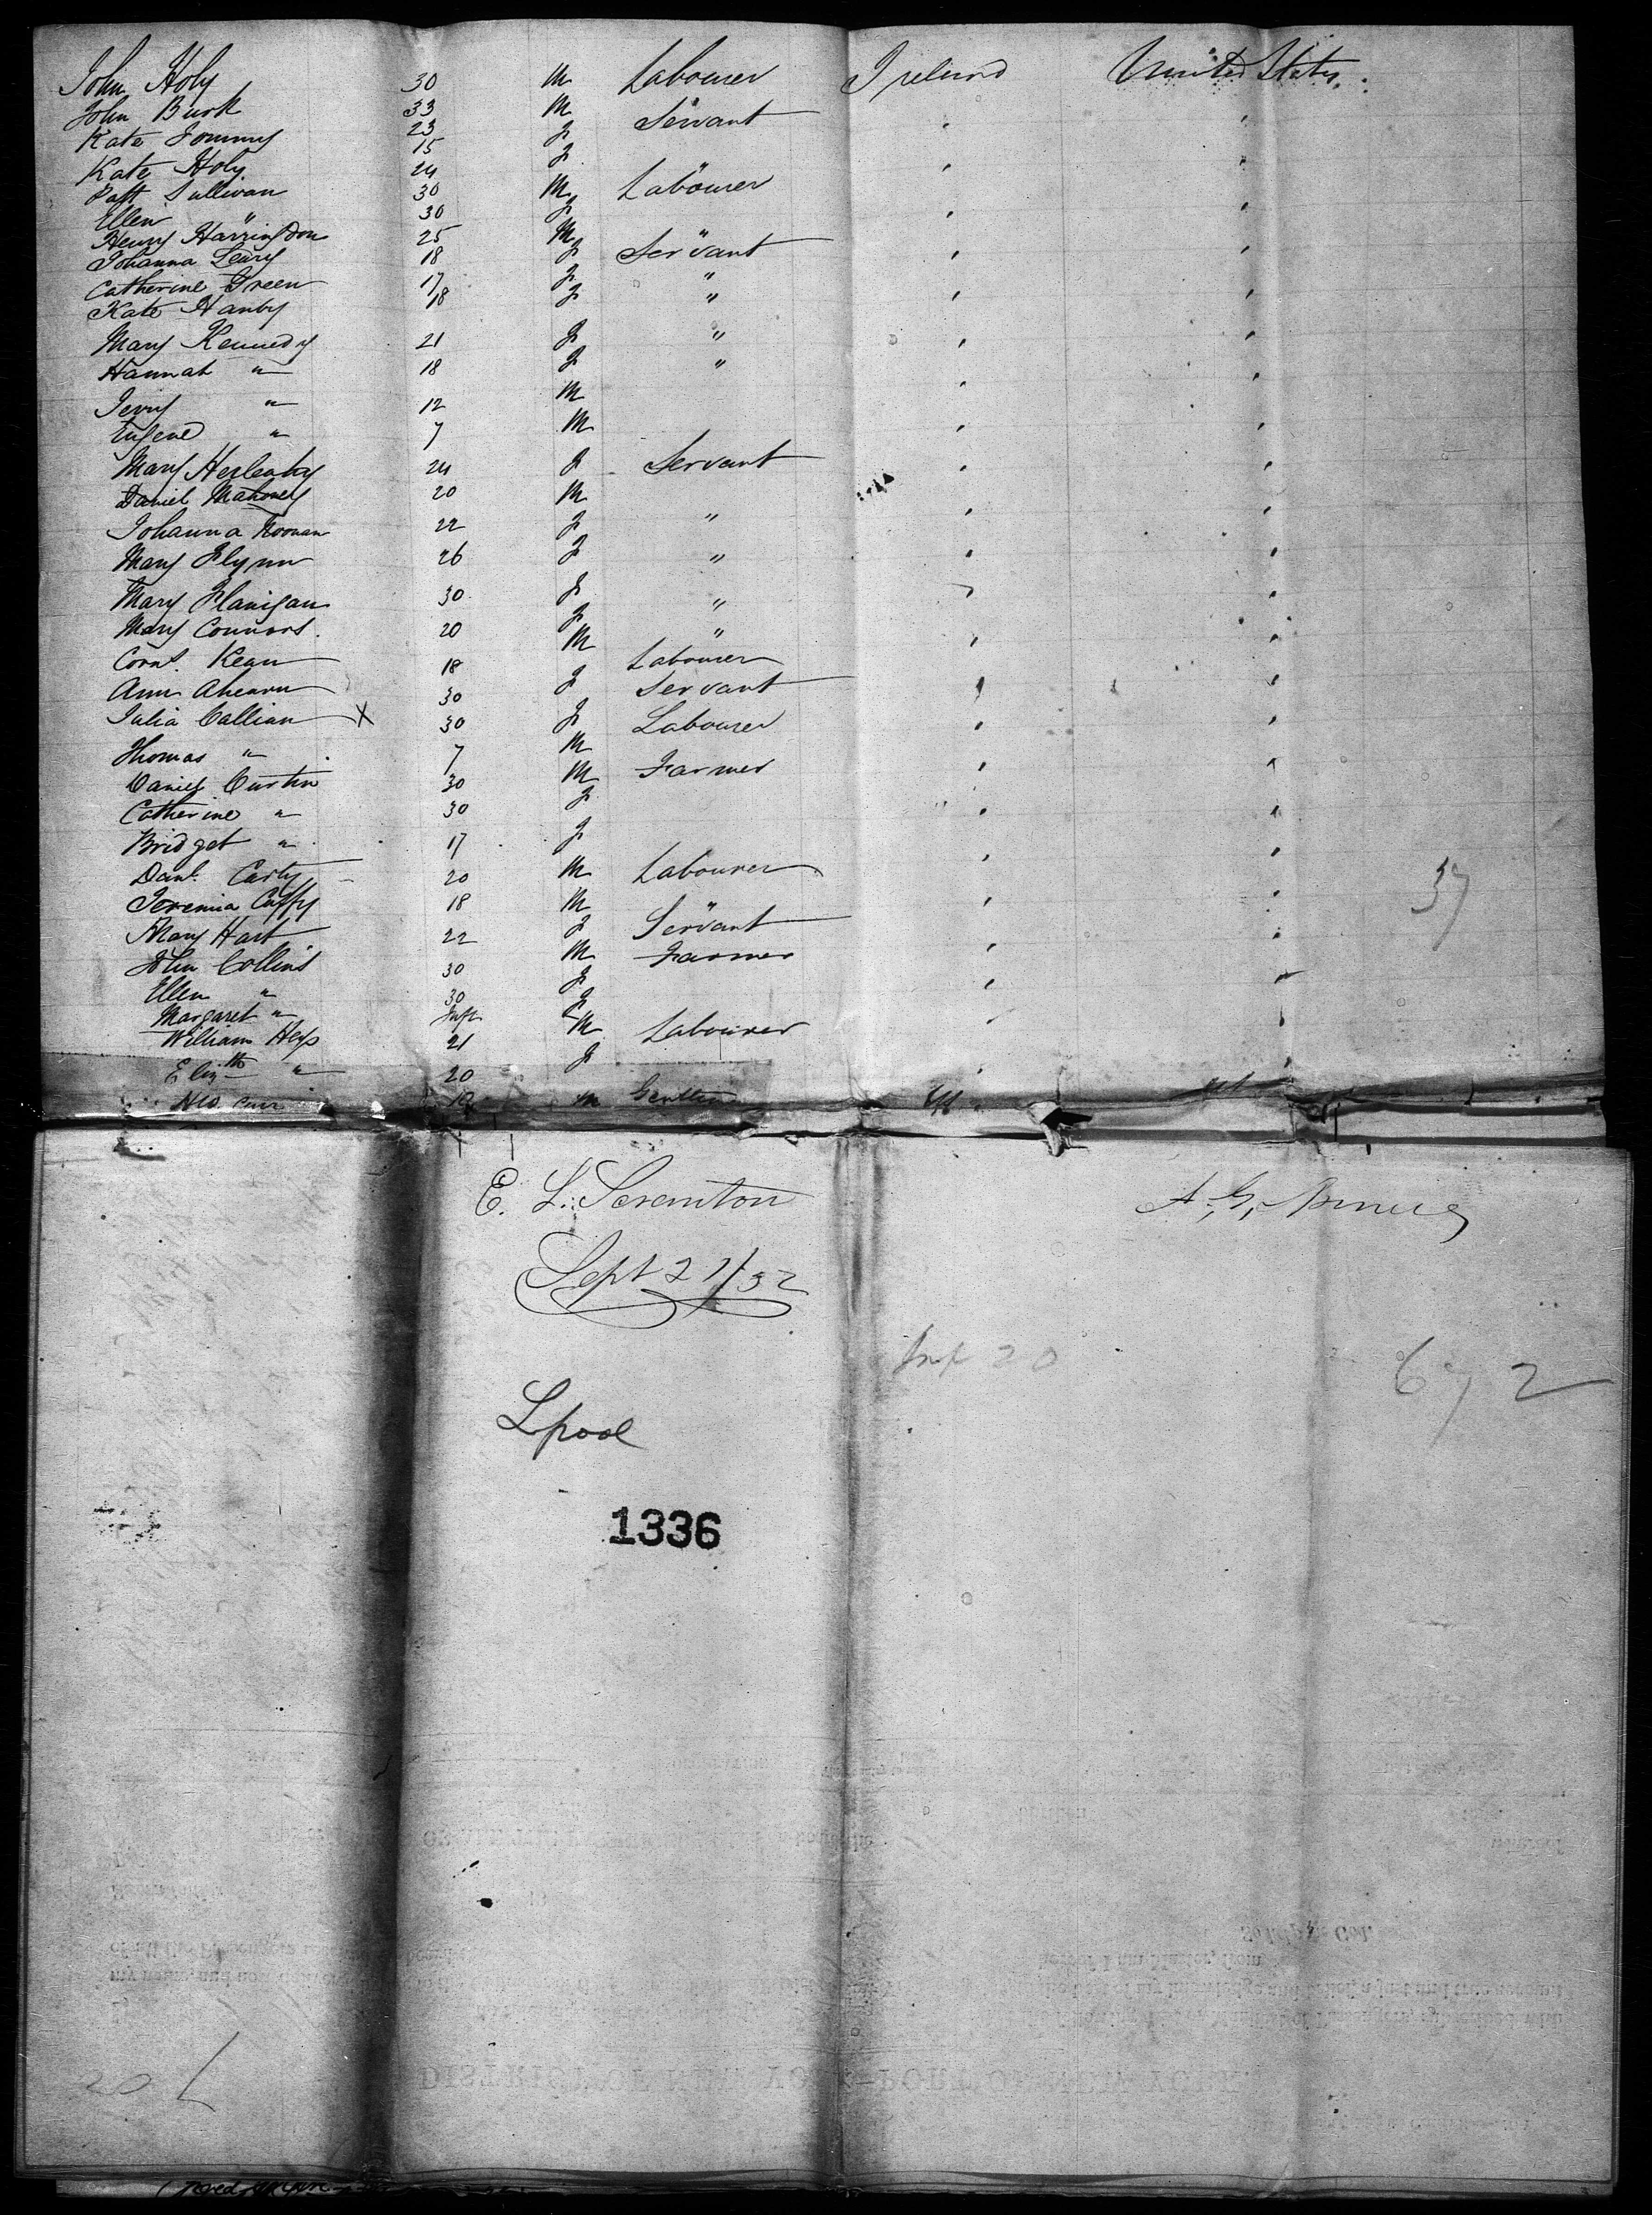 John Holy 30 M Labourer Ireland United States
John Burk 33 M "
Kate 23 F Servant
Kate Holy 15 F
Patt Sullivan 24 M Labourer
Ellen " 30 F
Henry Harrington 30 M "
Johanna Leary 25 F Servant
Catherine Green 18 F "
Kate Hanby 17 F "
Mary Kennedy 21 F "
Hannah " 18 F "
Jerry " 12 M
Eugene " 7 M
Mary Herleahy 24 F Servant
Daniel Mahoney 20 M
Johanna Noonan 22 F "
Mary Flynn 26 F "
Mary Flanigan 30 F "
Mary Connors 20 F "
Cornl. Kean 18 M Labourer
Ann Ahearn 30 F Servant
Julia Callian X 30 F Labourer
Thomas " 7 M
Daniel Curtin 30 M Farmer
Catherine " 30 F
Bridget " 17 F
Danl. Carty 20 M Labourer
Jeremia Cuffy 18 M "
Mary Hart 22 F Servant
John Collins 30 M Farmer
Ellen " 30 F
Margaret " Inft F
William Heys 21 M Labourer
Elizth " 20 F
37
E. L. Scranton
A. G.
Sept 21/52
Inf 20
672
Lpool
1336
DISTRICT OF NEW YORK—PORT OF NEW YORK
20